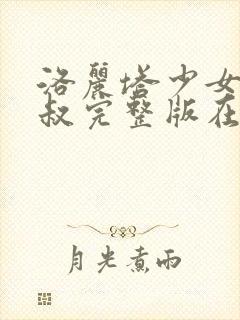 洛麗塔少女
叔完整版在
月光煮雨